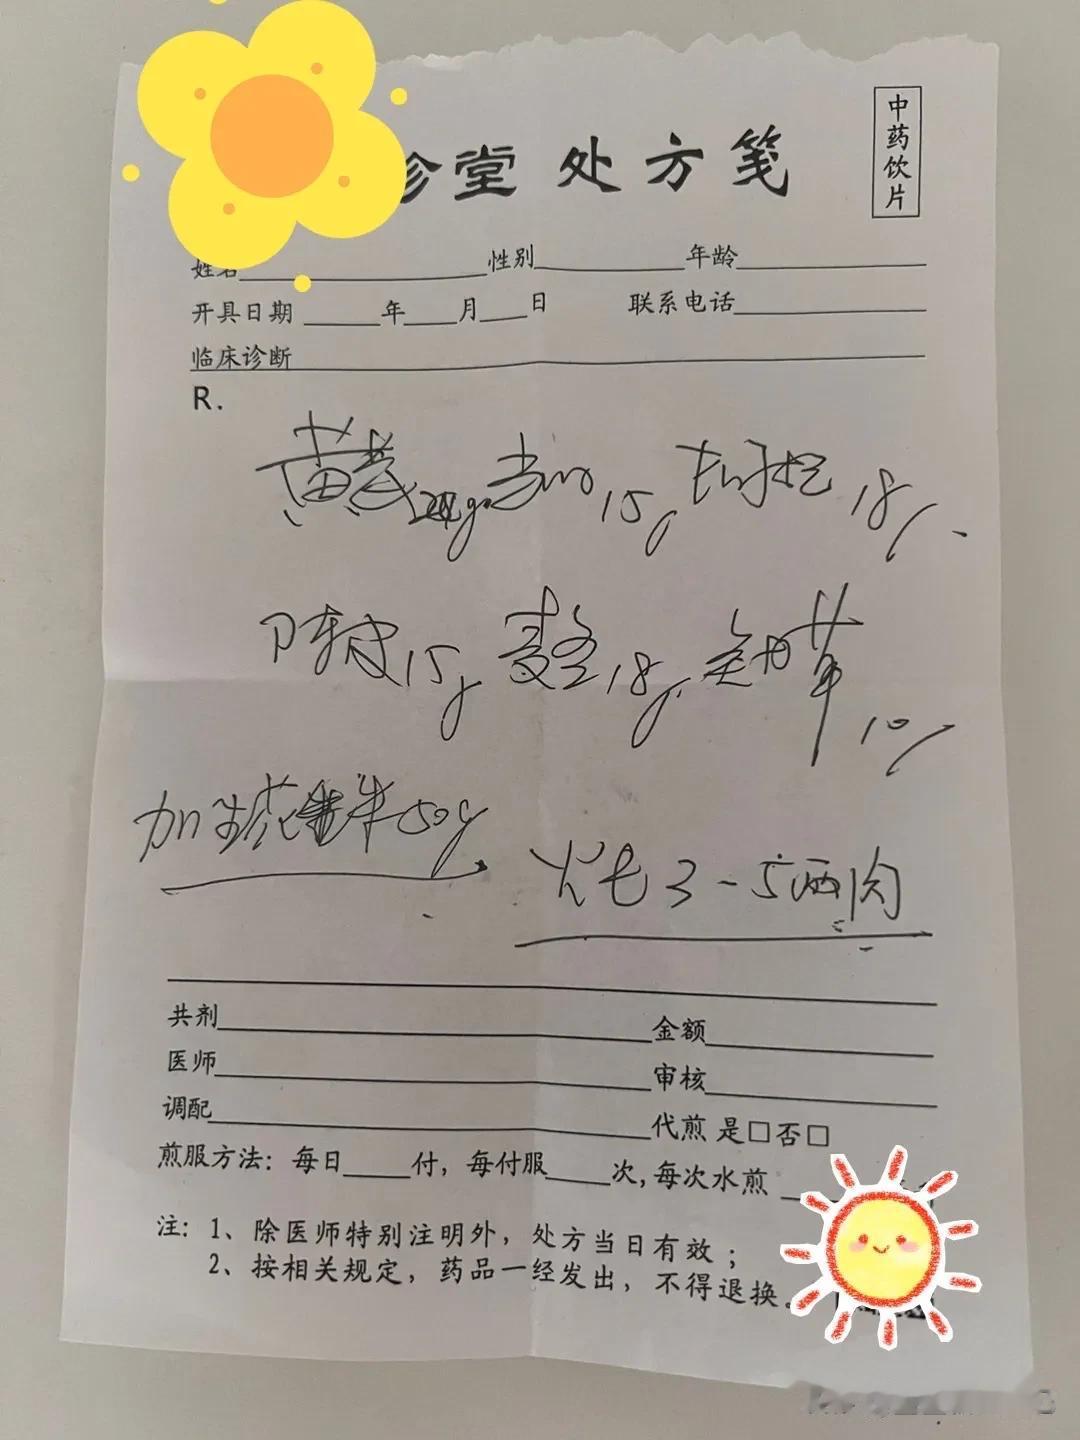 诊堂 处方笺
中药饮片
姓名 性别 年龄
开具日期 年 月 日 联系电话
临床诊断
R.
黄芪 当归15g 18g
陈皮15g 18g 10g
加生花生米50g
炖 3-5两肉
共剂 金额
医师 审核
调配 代煎 是□否□
煎服方法：每日 付，每付服 次，每次水煎
注：1、除医师特别注明外，处方当日有效；
2、按相关规定，药品一经发出，不得退换。